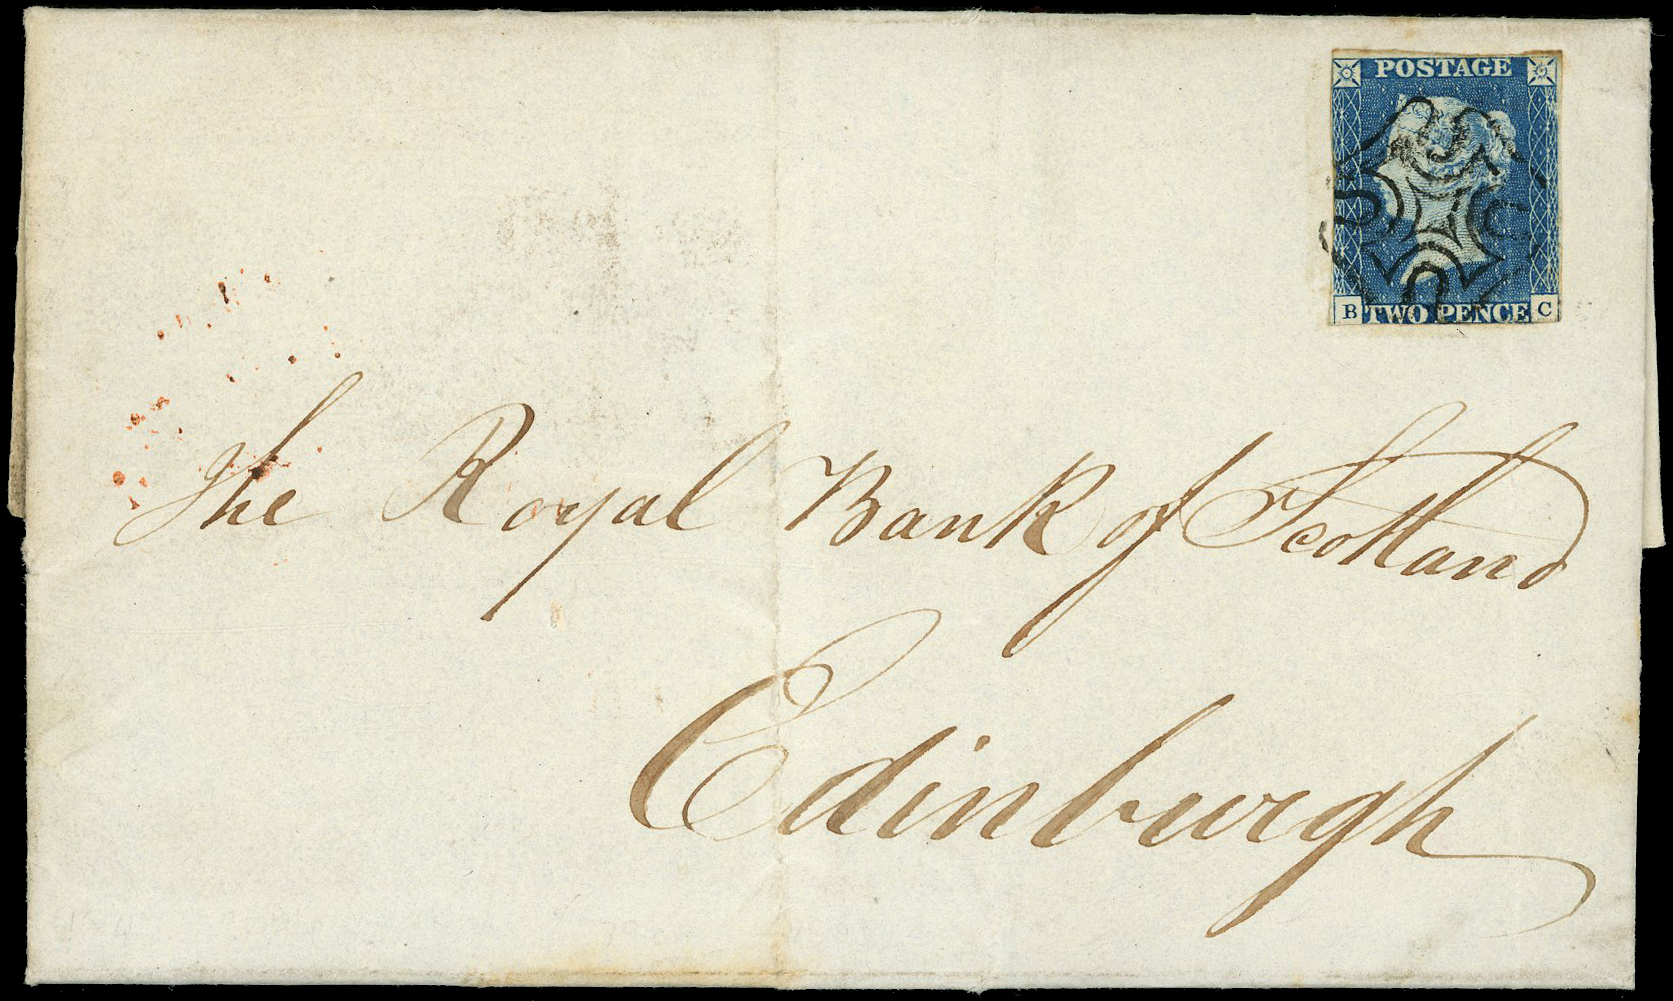 POSTAGE
B TWO PENCE C
The Royal Bank of Scotland
Edinburgh